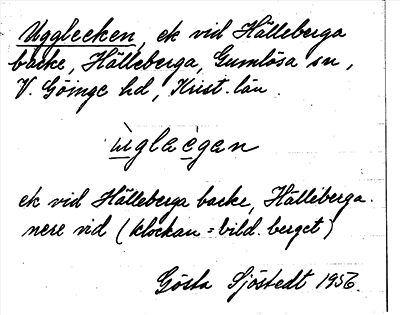 Ugglecken, ek vid Hälleberga
backe, Hälleberga, Gumlösa sn,
V. Göinge hd, Krist. län
ùglaègan
ek vid Hälleberga backe, Hälleberga.
nere vid (klockan = bild. berget)
Gösta Sjöstedt 1956.